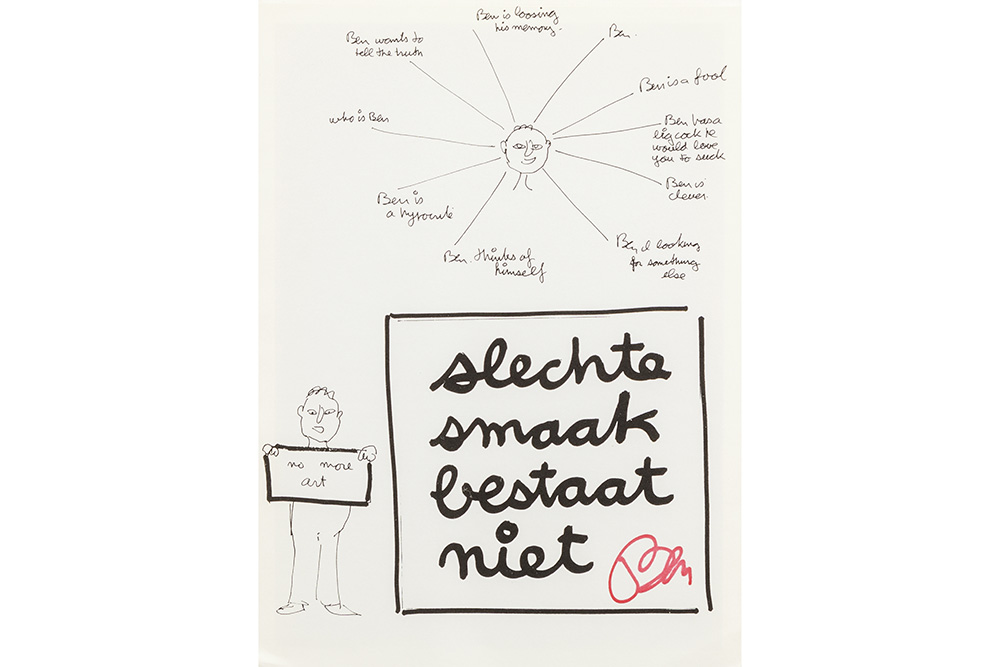 Ben is loosing
his memory.
Ben wants to
tell the truth
Ben.
Ben is a fool
who is Ben
Ben has a
big cock he
would love
you to suck
Ben is
clever.
Ben is
a hypocrite
Ben is looking
for something
else
Ben. thinks of
himself
no more
art
slechte
smaak
bestaat
niet
Ben